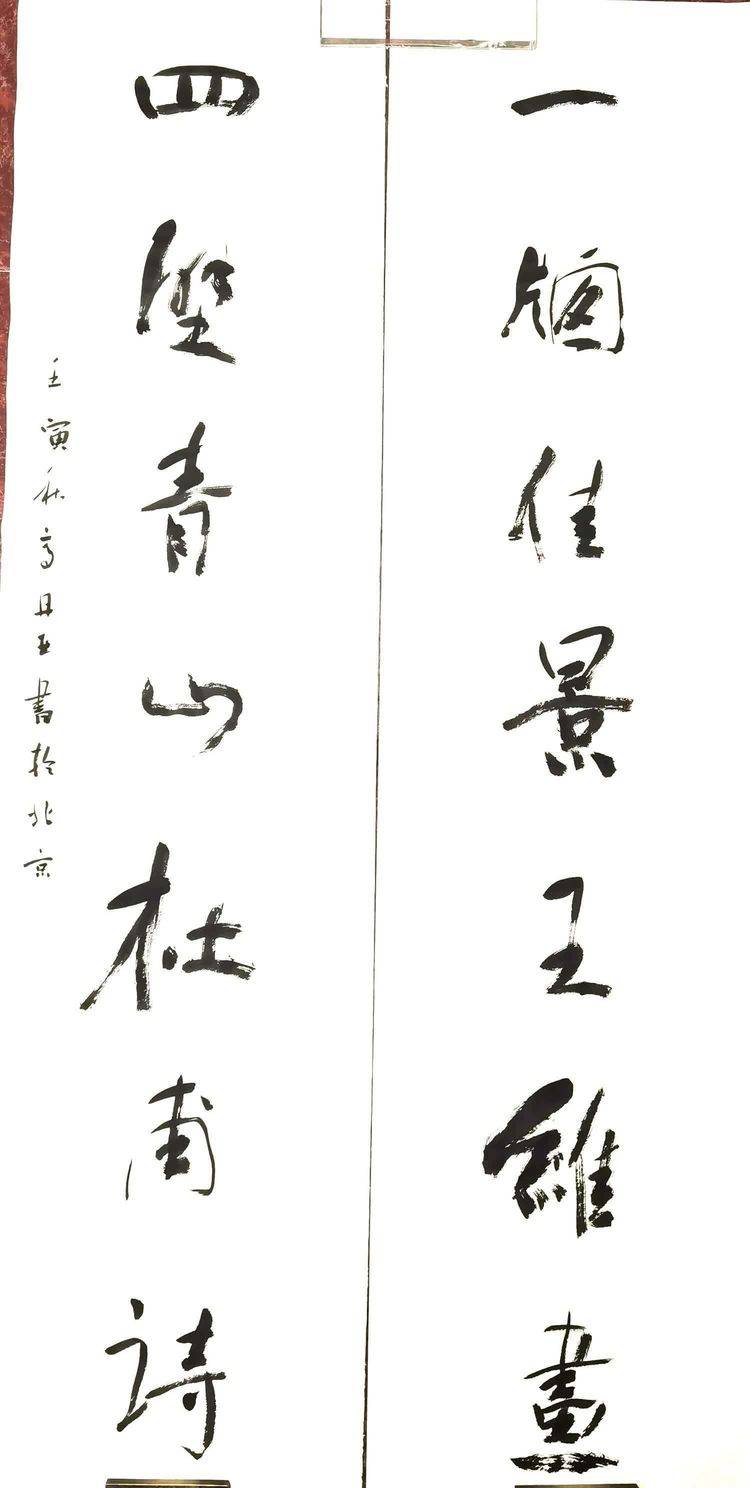 一牕佳景王維畫
四壁青山杜甫詩
壬寅秋高且五書於北京